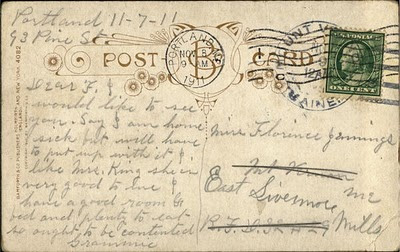 Portland 11-7-11
93 Pine St
POST CARD
PORTLAND, ME.
NOV 8
9 AM
1911
MAINE
ONE CENT
Dear F. I
would like to see
you. Say I am home
sick but will have
to put up with it I
like Mrs. King she is
very good to me I
have a good room &
bed and plenty to eat
so ought to be contented
Grammie
Miss Florence Jennings
Mt Vernon
East Livermore Me
Mills